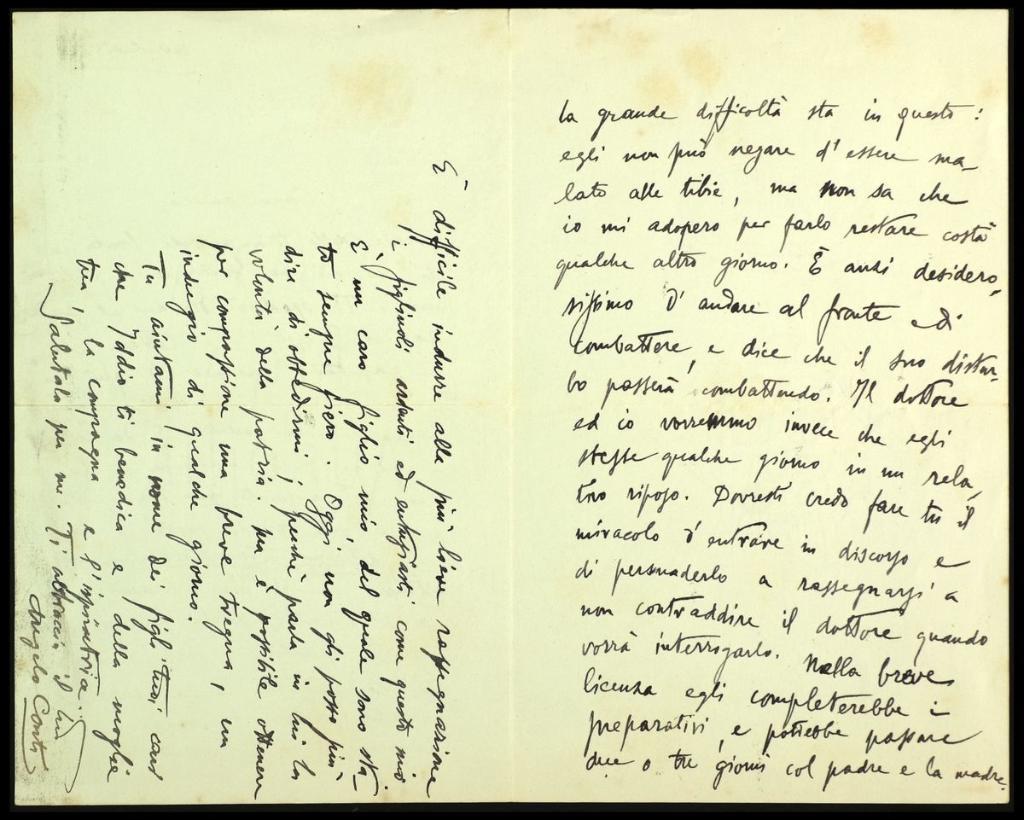 la grande difficoltà sta in questo:
egli non può negare d'essere ma-
lato alle tibie, ma non sa che
io mi adopero per farlo restare costà
qualche altro giorno. È anzi desidero-
sissimo d'andare al fronte e di
combattere, e dice che il suo distur-
bo passerà combattendo. Il dottore
ed io vorremmo invece che egli
stesse qualche giorno in un rela-
tivo riposo. Dovresti credo fare tu il
miracolo d'entrare in discorso e
di persuaderlo a rassegnarsi a
non contraddire il dottore quando
vorrà interrogarlo. Nella breve
licenza egli completerebbe i
preparativi, e potrebbe passare
due o tre giorni col padre e la madre.
È difficile indurre alla più lieve rassegnazione
i figliuoli ardenti ed entusiasti come questo mio
È un caro figlio mio, del quale sono sta
to sempre fiero. Oggi non gli posso più
dire di obbedirmi, perché parla in lui la
volontà della patria. Ma è possibile ottenere
per compassione una breve tregua, un
indugio di qualche giorno.
Tu aiutami in nome dei figli tuoi cari
che Iddio ti benedica e della moglie
tua, la compagna e l'ispiratrice.
Salutala per me. Ti abbraccio il tuo
Angelo Conti